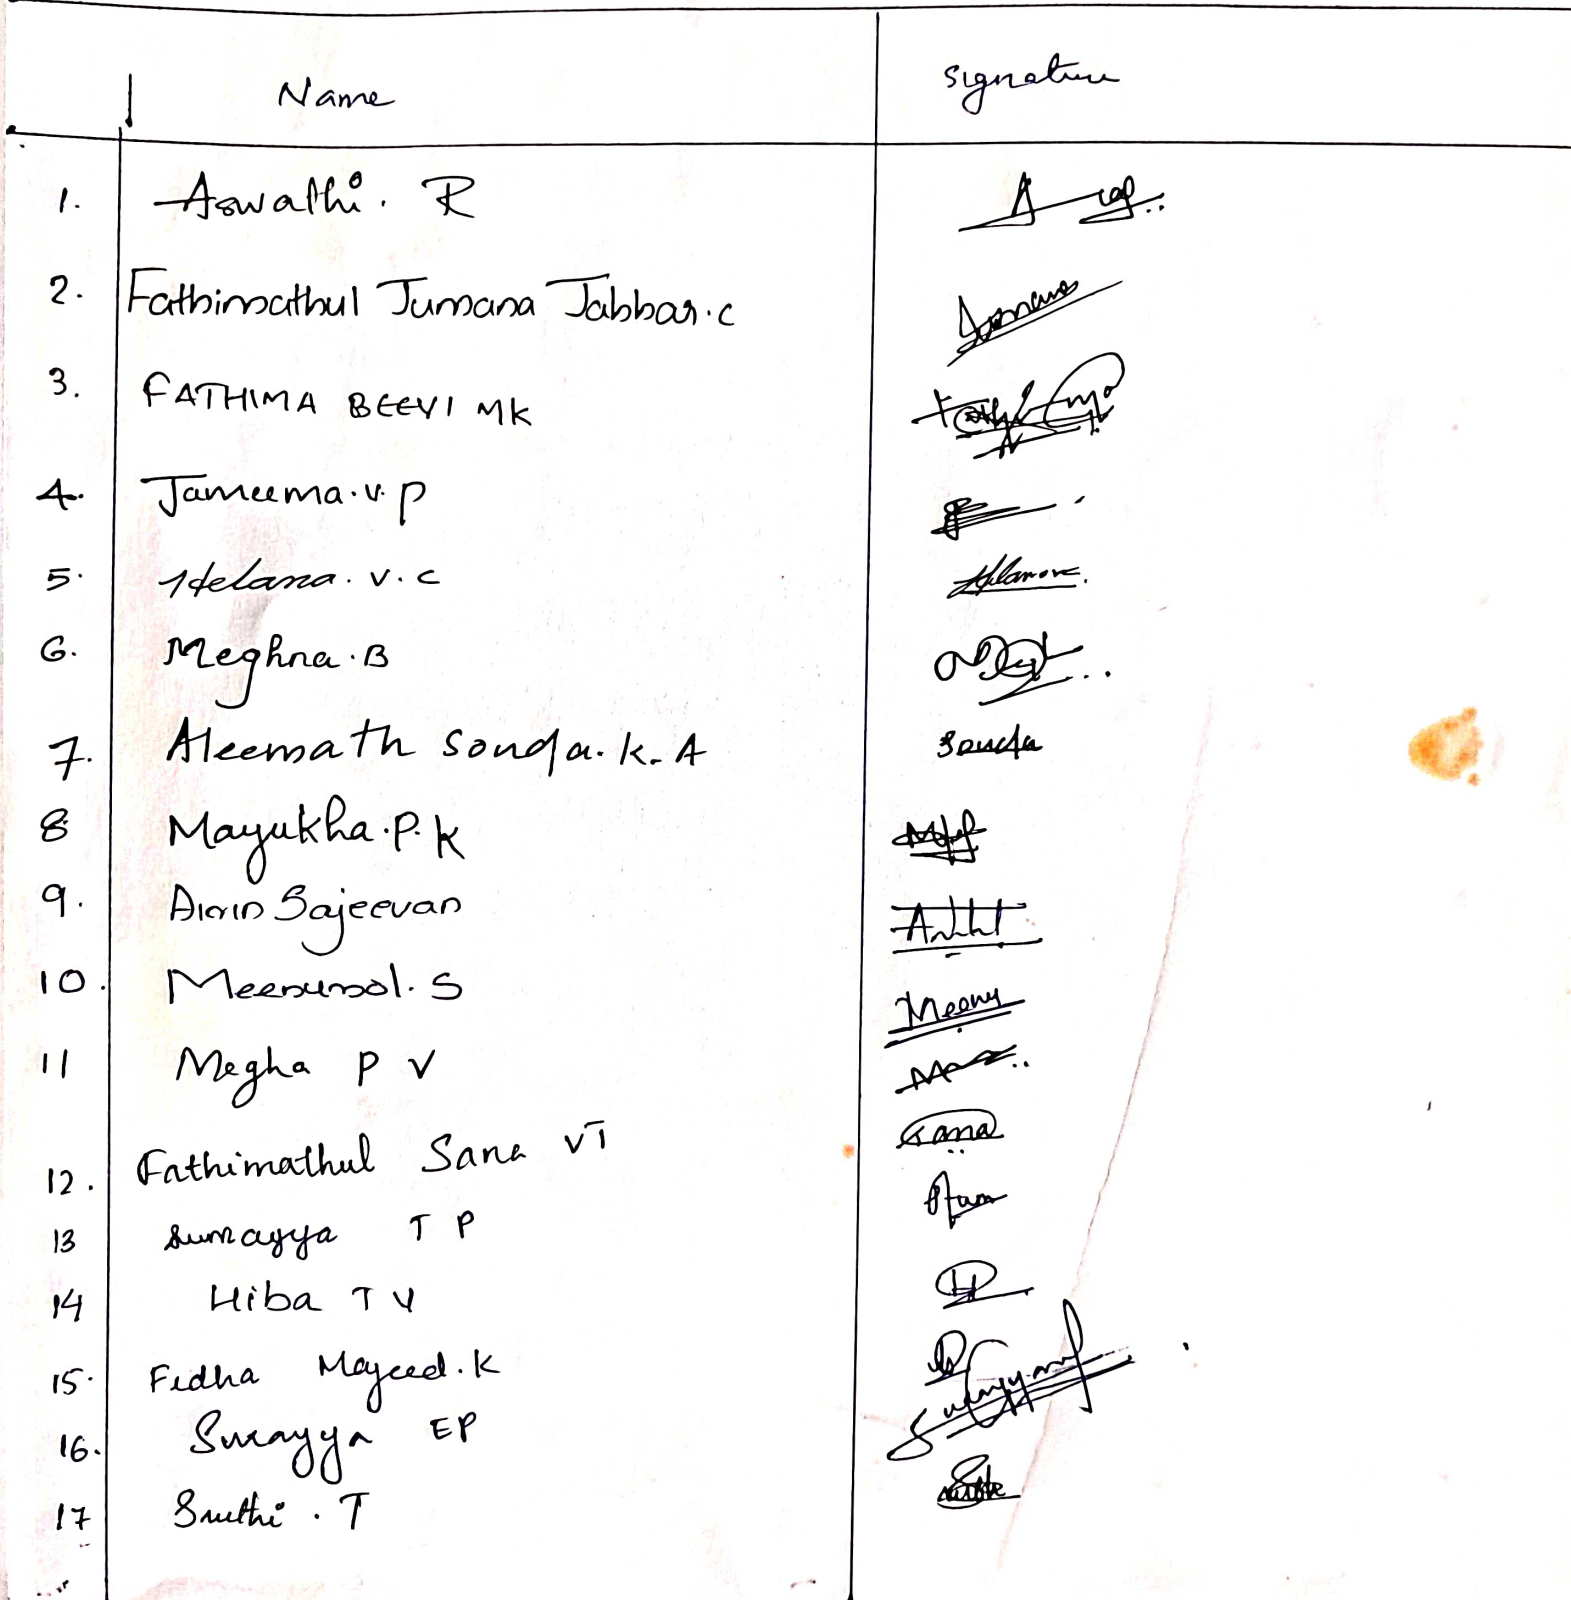 Name Signature
1. Aswathi. R
2. Fathimathul Jumana Jabbar.c Jumana
3. FATHIMA BEEVI MK
4. Jameema.v.p
5. Helana. v. c
6. Meghna.B
7. Aleemath sonda.k.A Sonda
8 Mayukha.P.k
9. Sajeevan
10. Meenumol. S Meenu
11 Megha P V
12. Fathimathul Sana VT Sana
13 Sumayya T P
14 Hiba T V
15. Fidha Majeed.k
16. Surayya EP
17 Sruthi . T